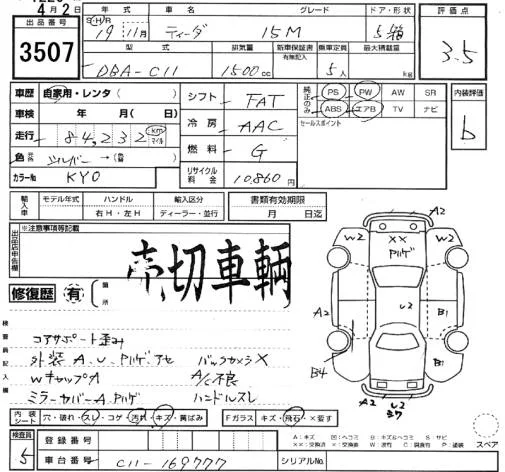 4月2日
出品番号
3507
年式 車名 グレード ドア・形状
S・H/R 19 11月 ティーダ 15M 5 箱
評価点
3.5
型式 排気量 新車保証書 有無記入 乗車定員 最大積載量
DBA-C11 1500cc 5人 kg
車歴 自家用・レンタ( )
車検 年 月( 日)
走行 84,232 km マイル
色 シルバー→( )
カラーNo KY0
シフト FAT
冷房 AAC
燃料 G
リサイクル料金 10,860円
純正のみ PS PW AW SR
ABS エアB TV ナビ
セールスポイント
内装評価
b
輸入車 モデル年式 ハンドル 輸入区分
右H・左H ディーラー・並行
書類有効期限
月 日迄
出品店申告欄
※注意事項等記載
売切車輌
修復歴 有 箇所
検査員記入欄
コアサポート歪み
外装A.U.Pハゲ アセ バックカメラX
WキャップA A/C不良
ミラーカバーA.Pハゲ ハンドルスレ
A2
W2 XX W2
Pハゲ
A2 U2 B1
B4 B1
A2 U2 A2
内装シート 穴・破れ・スレ・コゲ・汚れ・キズ・黄ばみ
Fガラス キズ・飛石・X要す
スペア
検査員 5
登録番号
車台番号 C11-169777
シリアルNo.
A:キズ U:ヘコミ B:キズ&ヘコミ S:サビ
XX:交換済 X:交換要 W:波有 C:腐食有 P:塗装